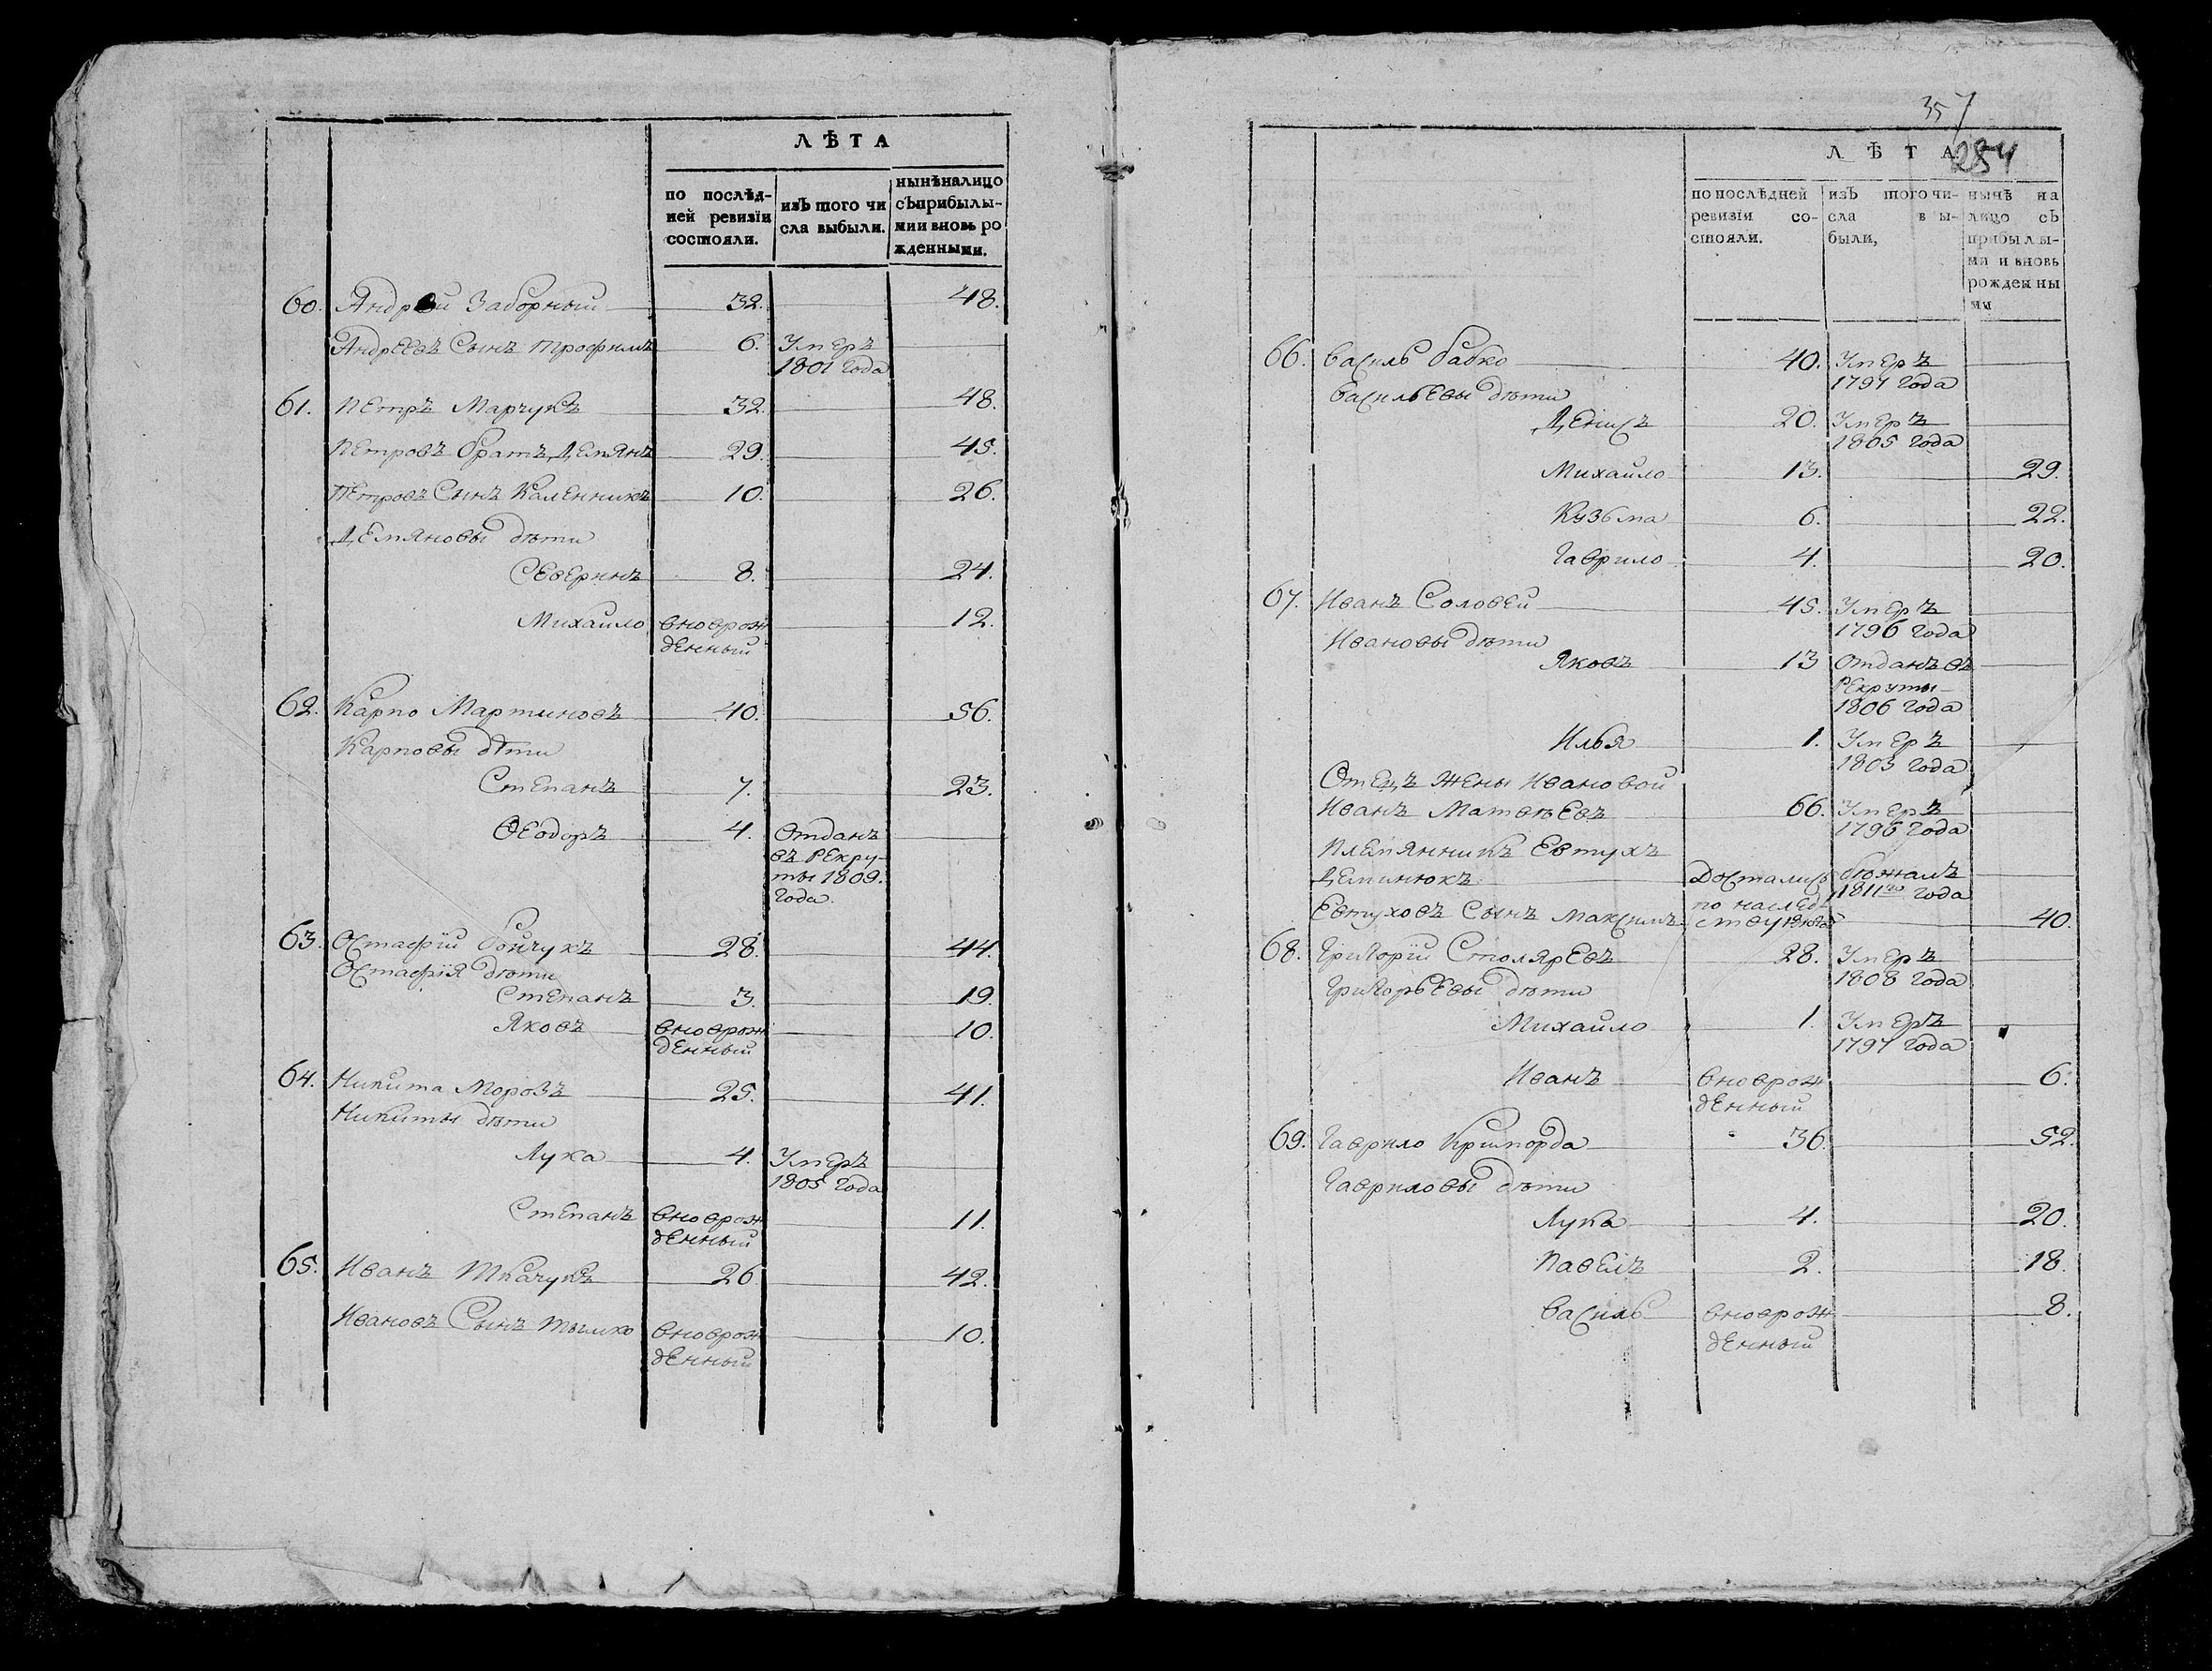 ЛѢТА
по послѣд-
ней ревизіи
состояли.
изъ того чи
сла выбыли.
нынѣ налицо
съ прибылы-
ми и вновь ро
жденными.
60. Андрей Заборный 32. 48.
Андреевъ Сынъ Трофимъ 6. Умеръ
1801 года
61. Петръ Марчукъ 32. 48.
Петровъ братъ Демянъ 29. 45.
Петровъ Сынъ Каленникъ 10. 26.
Демяновы дѣти
Северинъ 8. 24.
Михайло вноврож 12.
денный
62. Карпо Мартиновъ 40. 56.
Карповы дѣти
Степанъ 7. 23.
Ѳеодоръ 4. Отданъ
въ рекру-
ты 1809.
года.
63. Остафій Бончукъ 28. 44.
Остафія дѣти
Степанъ 3. 19.
Яковъ вноврож 10.
денный
64. Никита Морозъ 25. 41.
Никиты дѣти
Лука 4. Умеръ
1805 года
Степанъ вноврож 11.
денный
65. Иванъ Ткачукъ 26. 42.
Ивановъ Сынъ Тымко вноврож 10.
денный
357
284
ЛѢТА
по послѣдней
ревизіи со-
стояли.
изъ того чи-
сла вы-
были,
нынѣ на
лицо съ
прибылы-
ми и вновь
рожденны
ми
66. Василь Бабко 40. Умеръ
1797 года
Васильевы дѣти
Денисъ 20. Умеръ
1805 года
Михайло 13. 29.
Кузьма 6. 22.
Гаврило 4. 20.
67. Иванъ Соловей 45. Умеръ
1796 года
Ивановы дѣти
Яковъ 13 Отданъ въ
Рекруты
1806 года
Илья 1. Умеръ
1803 года
Отецъ жены Ивановой
Иванъ Матвѣевъ 66. Умеръ
1796 года
Племянникъ Евтухъ
Деминюкъ Достались бѣжалъ
по наслед- 1811го года
Евтуховъ Сынъ Максимъ ству 40.
68. Григорій Столяревъ 28. Умеръ
1808 года
Григорьевы дѣти
Михайло 1. Умеръ
1797 года
Иванъ вноврож 6.
денный
69. Гаврило Крипорда 36. 52.
Гавриловы дѣти
Лука 4. 20.
Павелъ 2. 18.
Василь вноврож 8.
денный